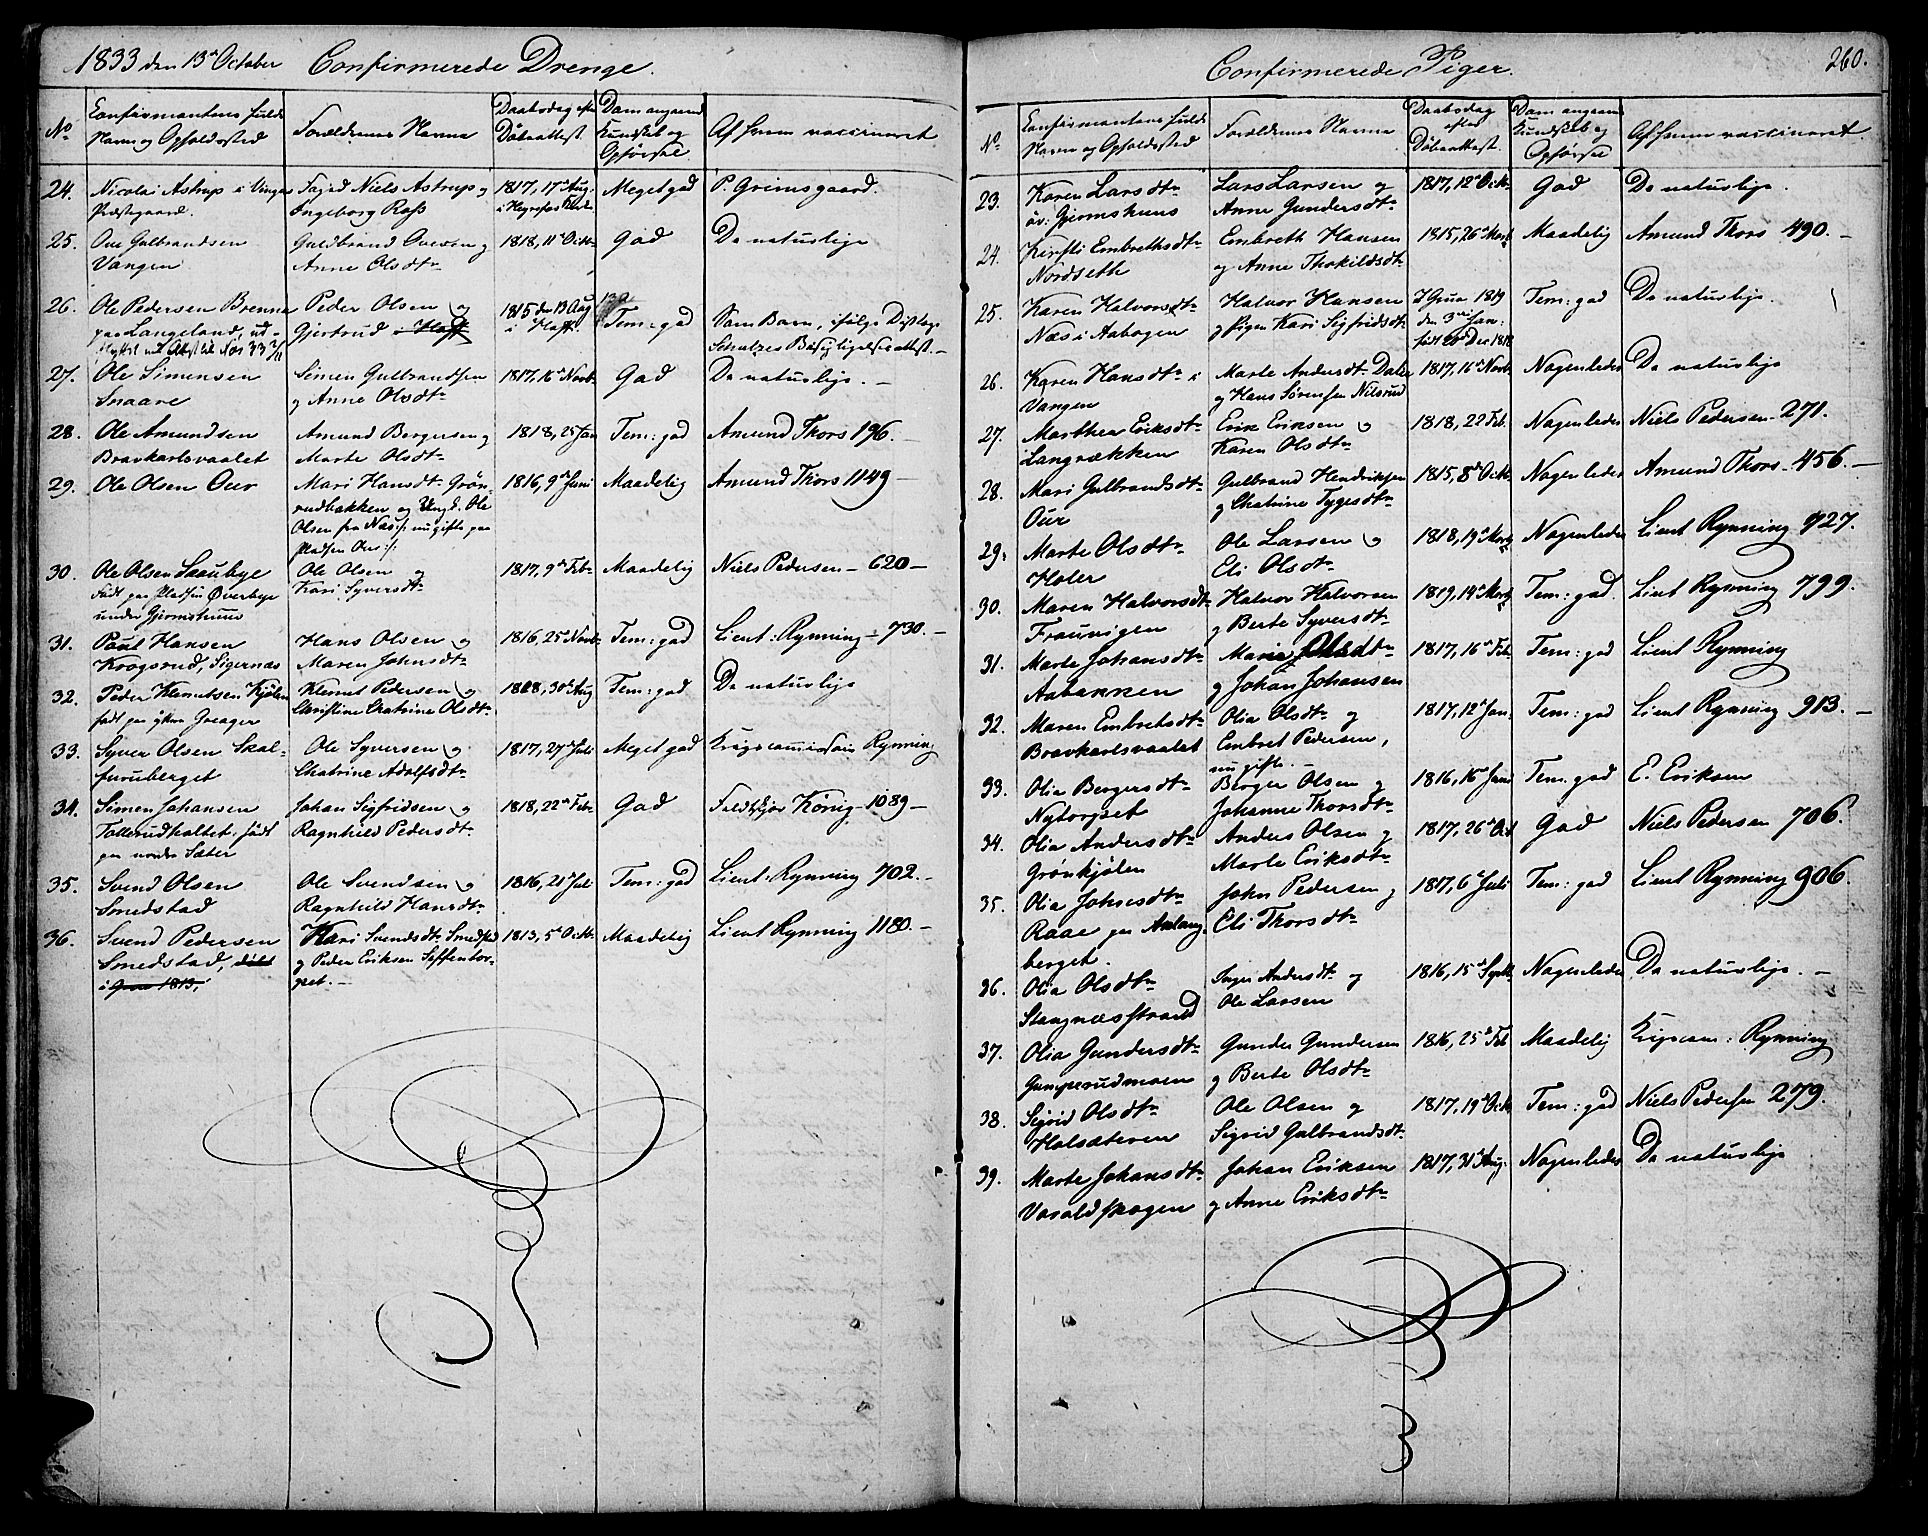 1833 den 13de October Confirmerede Drenge.
No
Confirmantens fulde
Navn og Opholdssted
Forældrenes Navne
Daabsdag efter
Døbeattest.
Dom angaaend
Kundskab og
Opførsel.
Af hvem vaccineret
24. Nicolai Astrup i Vinger
Præstegaard.
Foged Niels Astrup og
Ingeborg Rass
1817, 17de Aug.
Meget god
P. Grimsgaard.
25. Ove Gulbrandsen
Vangen
Guldbrand Ovesen og
Anne Olsdtr
1818, 11te Octr
God
De naturlige
26. Ole Pedersen Brenna
paa Langeland, ud-
flyttet med Attest til Næs 33 2/11
Peder Olsen og
Gjertrud Hoff
1815 den 13 Aug
i Hoff
Tem: god
Som Barn, ifølge Distlæge
Schulzes Besigtigelsesattest.
27. Ole Simensen
Snaare
Simen Gulbrandsen
og Anne Olsdtr
1817, 16de Novbr
God
De naturlige. –
28. Ole Amundsen
Bravkarlsvaalet
Amund Bergersen og
Marte Olsdtr
1818, 25 Jan
Tem: god
Amund Thors 196. –
29. Ole Olsen Our
Mari Hansdtr Grøn-
rudbakken og Ungk. Ole
Olsen fra Næs /: nu gifte paa
Pladsen Our :/
1816, 9de Juni
Maadelig
Amund Thors 1149 –
30. Ole Olsen Skaubye
født paa Pladsen Øverbye
under Gjermshuus
Ole Olsen og
Kari Syversdtr
1817, 9de Febr
Maadelig
Niels Pedersen – 620 –
31. Paul Hansen
Krogsrud, Sigernæs
Hans Olsen og
Maren Johnsdtr
1816, 25de Novbr
Tem: god
Lieut: Rynning – 730. –
32. Peder Klemetsen Kjølen
født paa Greager
Klemet Pedersen og
Christine Chatrine Olsdtr
1818, 30te Aug
Tem: god
De naturlige
33. Syver Olsen Skal-
furuberget
Ole Syversen og
Chatrine Adolfsdtr
1817, 27de Juli
Meget god
Krigscommissair Rynning
34. Simen Johansen
Tollerudholtet, født
paa nordre Sæter
Johan Sigfridsen og
Ragnhild Pedersdtr
1818, 22de Febr
God
Feldtskjær König – 1089 –
35. Svend Olsen
Smedstad
Ole Svendsen og
Ragnhild Hansdtr
1816, 21de Juli
Tem: god
Lieut: Rynning 702. –
36. Svend Pedersen
Smedstad, døbt
i Grue 1813,
Kari Svendsdtr Smedstad
og Peder Eriksen Seffentor-
pet. –
1813, 5te Octr
Maadelig
Lieut Rynning 1180. –
Confirmerede Piger.
260.
No
Confirmantens fulde
Navn og Opholdssted
Forældrenes Navne
Daabsdag
efter
Døbeattest.
Dom angaaend
Kundskab og
Opførsel
Af hvem vaccineret
23. Karen Larsdtr
øv: Gjermshuus
Lars Larsen og
Anne Gundersdtr
1817, 12te Octr
God
De naturlige.
24. Kirsti Embrethsdtr
Nordseth
Embreth Hansen
og Anne Thokildsdtr
1815, 26de Marts
Maadelig
Amund Thors 490. –
25. Karen Halvorsdtr
Næs i Aabogen
Halvor Hansen
og Pigen Kari Sigfridsdtr
I Grue 1819
den 3die Jan:
født 20de Dec 1818
Tem: god
De naturlige.
26. Karen Hansdtr i
Vangen
Marte Andersdtr
og Hans Sørensen Nilsrud
1817, 16de Novbr
Nogenledes
De naturlige
27. Marthea Eriksdtr
Langrækken
Erik Eriksen og
Karen Olsdtr
1818, 22 Feb.
Nogenledes
Niels Pedersen 271.
28. Mari Gulbrandsdtr
Our
Gulbrand Hendriksen
og Chatrine Tygesdtr
1815, 8de Octr
Nogenledes
Amund Thors – 456. –
29. Marte Olsdtr
Holer
Ole Larsen og
Eli Olsdtr
1818, 19de Marts
Nogenledes
Lieut Rynning 927.
30. Maren Halvorsdtr
Frauvigen
Halvor Halvorsen
og Berte Syversdtr
1819, 14de Marts
Tem: god.
Lieut Rynning 799.
31. Marte Johansdtr
Aabakken
Marie Olsdtr
og Johan Johansen
1817, 16de Feb
Tem: god
Lieut Rynning
32. Maren Embretsdtr
Bravkarlsvaalet
Olia Olsdtr og
Embret Pedersen,
nu gifte. –
1817, 12te Jan.
Tem: god
Lieut Rynning 913. –
33. Olia Bergersdtr
Nytorpet
Berger Olsen og
Johanne Thorsdtr
1816, 16de Juni
Tem: god
E. Eriksen
34. Olia Andersdtr
Grønkjølen
Anders Olsen og
Marte Eriksdtr
1817, 26de Oct
God
Niels Pedersen 706.
35. Olia Johnsdtr
Raae paa Aslang
berget.
John Pedersen og
Eli Thorsdtr
1817, 6te Juli
Tem: god
Lieut Rynning 906.
36. Olia Olsdtr
Stangnæsstrand
Inger Andersdtr og
Ole Larsen
1816, 15de Sept
Nogenledes
De naturlige. –
37. Olia Gundersdtr
Gumperudmoen
Gunder Gundersen
og Berte Olsdtr
1816, 25de Feb
Maadelig
Krigscom: Rynning
38. Sigrid Olsdtr
Holsæteren
Ole Olsen og
Sigrid Gulbrandsdtr
1817, 19de Octr
Tem: god
Niels Pedersen 279.
39. Marte Johansdtr
Varaldskogen
Johan Eriksen
og Anne Eriksdtr
1817, 31te Aug.
Nogenledes
De naturlige